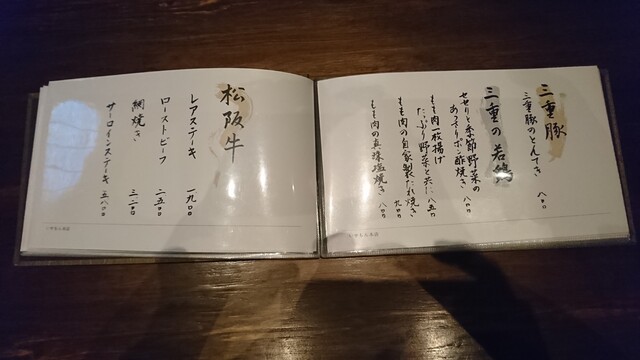 三重豚
三重豚のとんてき 八〇〇
三重の若鶏
セセリと季節野菜の
あっさりポン酢焼き 八〇〇
もも肉一枚揚げ
たっぷり野菜と共に 八五〇
もも肉の自家製だれ焼き 九〇〇
もも肉の真珠塩焼き 八〇〇
松阪牛
レアステーキ 一九〇〇
ローストビーフ 二五〇〇
網焼き 三二〇〇
サーロインステーキ 五八〇〇